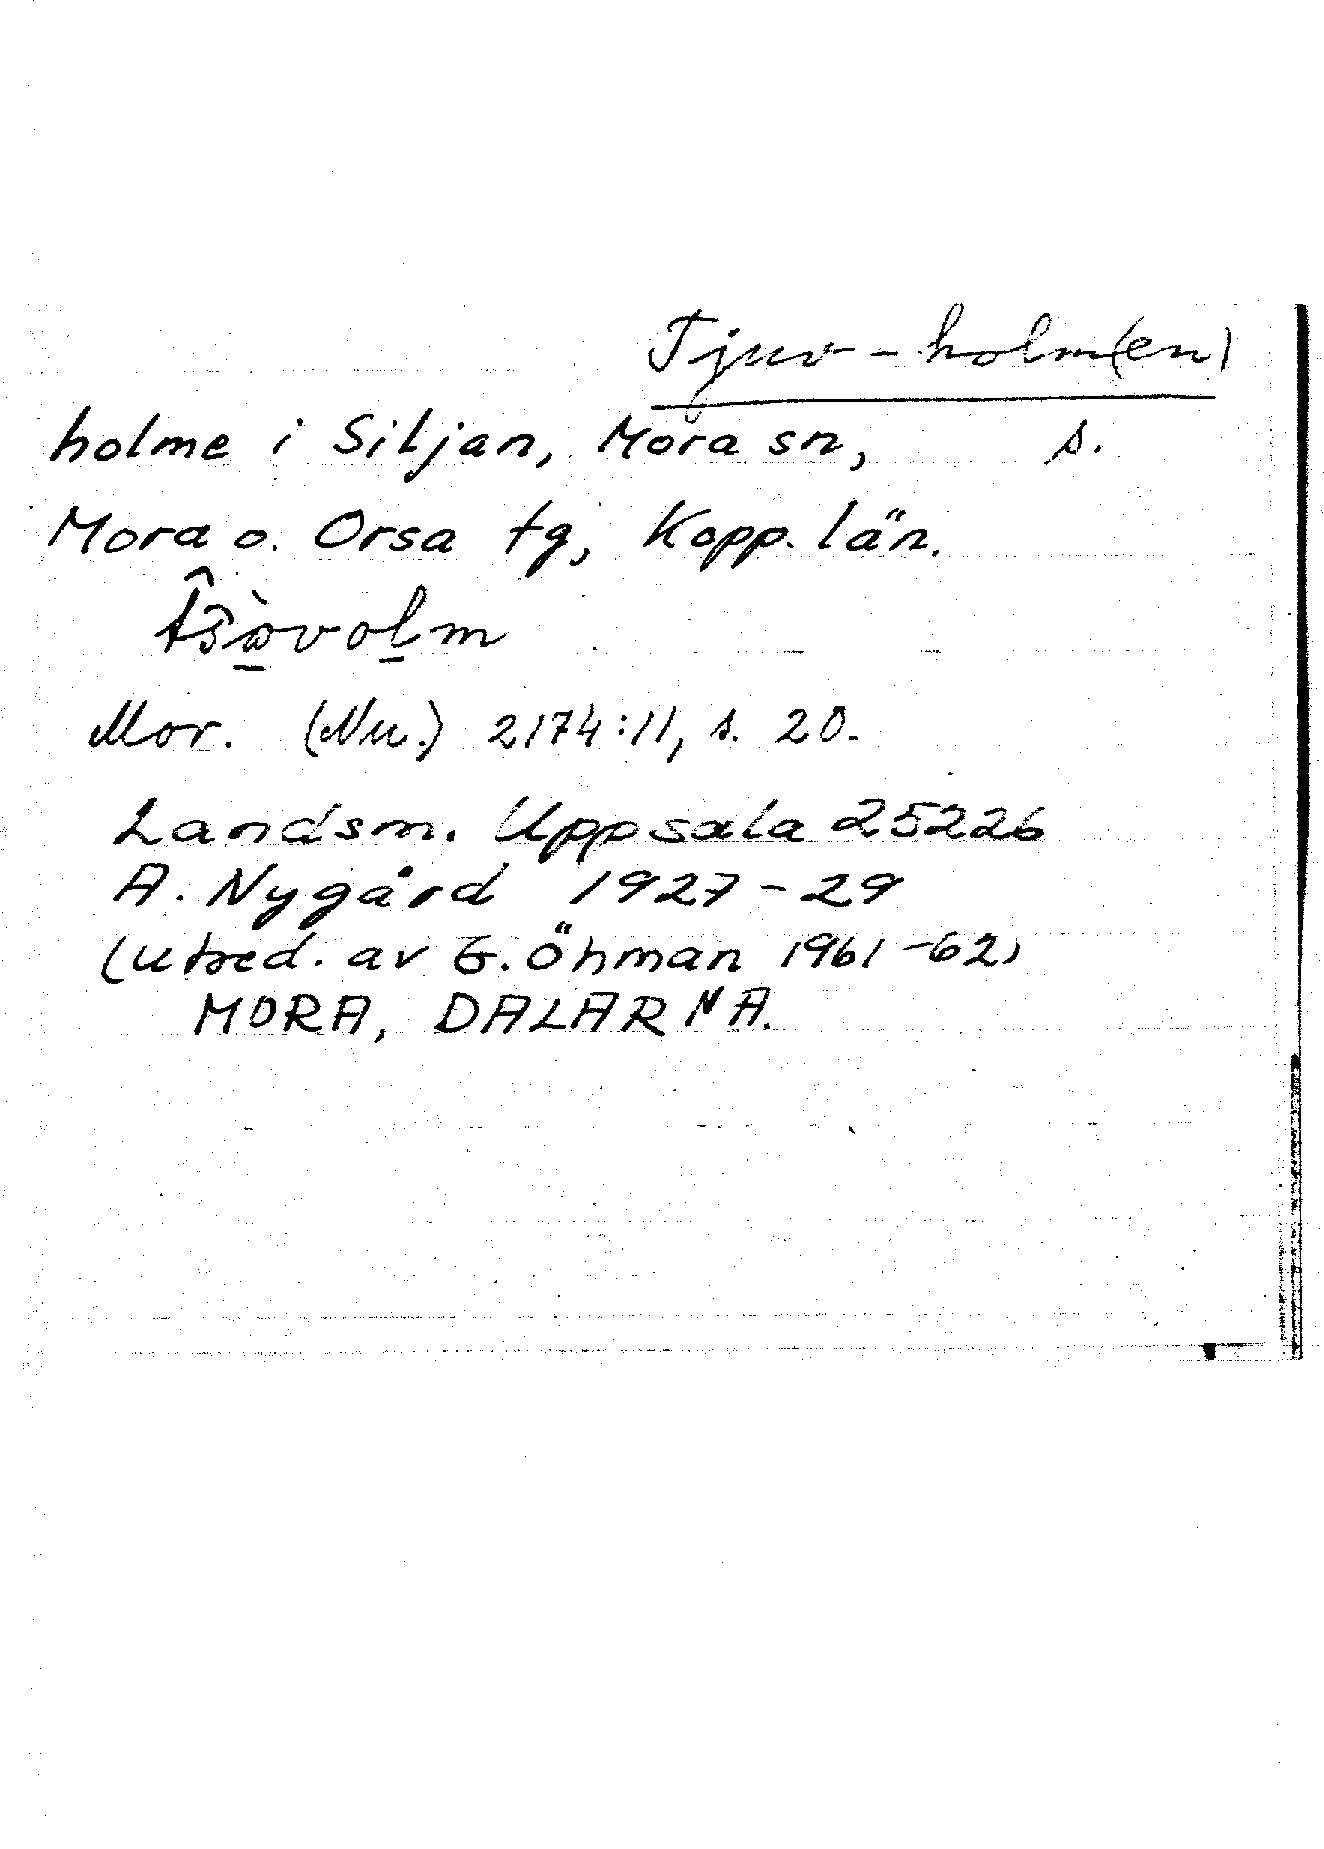 Tjuv-holm(en)
holme i Siljan, Mora sn, s.
Mora o. Orsa tg, Kopp. län.
Mor. (Nu.) 2174:11, s. 20.
Landsm. Uppsala 25226
A. Nygård 1927-29
(utred. av G. Öhman 1961-62)
MORA, DALARNA.